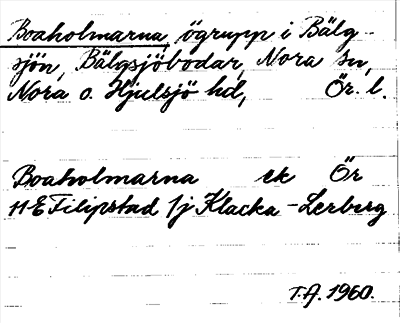 Boaholmarna, ögrupp i Bälg-
sjön, Bälgsjöbodar, Nora sn,
Nora o. Hjulsjö hd, Ör. l.
Boaholmarna ek Ör
11 E Filipstad 1j Klacka-Lerberg
T.A. 1960.